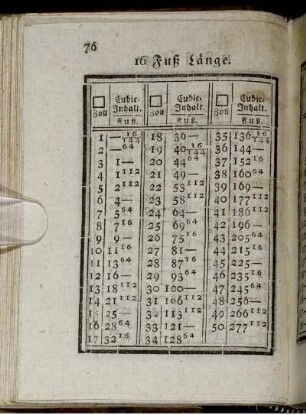 76
16 Fuß Länge.
□ Zoll | Cubic-Inhalt. Fuß. | □ Zoll | Cubic-Inhalt. Fuß. | □ Zoll | Cubic-Inhalt. Fuß.
1 | — 16/144 | 18 | 36 — | 35 | 136 16/144
2 | — 64 | 19 | 40 16/144 | 36 | 144 —
3 | 1 — | 20 | 44 64 | 37 | 152 16
4 | 1 112 | 21 | 49 — | 38 | 160 64
5 | 2 112 | 22 | 53 112 | 39 | 169 —
6 | 4 — | 23 | 58 112 | 40 | 177 112
7 | 5 64 | 24 | 64 — | 41 | 186 112
8 | 7 16 | 25 | 69 64 | 42 | 196 —
9 | 9 — | 26 | 75 16 | 43 | 205 64
10 | 11 16 | 27 | 81 — | 44 | 215 16
11 | 13 64 | 28 | 87 16 | 45 | 225 —
12 | 16 — | 29 | 93 64 | 46 | 235 16
13 | 18 112 | 30 | 100 — | 47 | 245 64
14 | 21 112 | 31 | 106 112 | 48 | 256 —
15 | 25 — | 32 | 113 112 | 49 | 266 112
16 | 28 64 | 33 | 121 — | 50 | 277 112
17 | 32 16 | 34 | 128 64